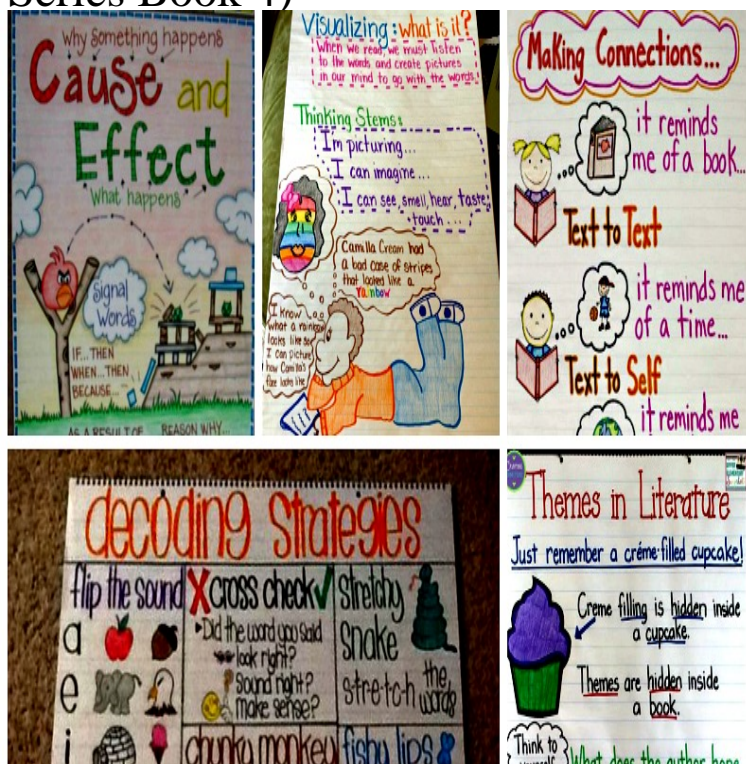 Series Book 4)
Why Something happens
Cause and
Effect
What happens
Signal
Words
IF...THEN
WHEN...THEN
BECAUSE...
AS A RESULT OF
REASON WHY...
Visualizing: what is it?
When we read, we must listen
to the words and create pictures
in our mind to go with the words.
Thinking Stems:
I'm picturing...
I can imagine...
I can see, smell, hear, taste,
touch...
Camilla Cream had
a bad case of stripes
that looked like a
rainbow
I know
what a rainbow
looks like so
I can picture
how Camilla's
face looks like
Making Connections...
it reminds
me of a book...
Text to Text
it reminds me
of a time...
Text to Self
it reminds me
decoding Strategies
flip the sound
a
e
i
X cross check ✓
•Did the word you said
look right?
sound right?
make sense?
Stretchy
Snake
s-t-r-e-t-c-h the
words
chunky monkey
fishy lips
Themes in Literature
Just remember a créme-filled cupcake!
Creme filling is hidden inside
a cupcake.
Themes are hidden inside
a book.
Think to
What does the author hope